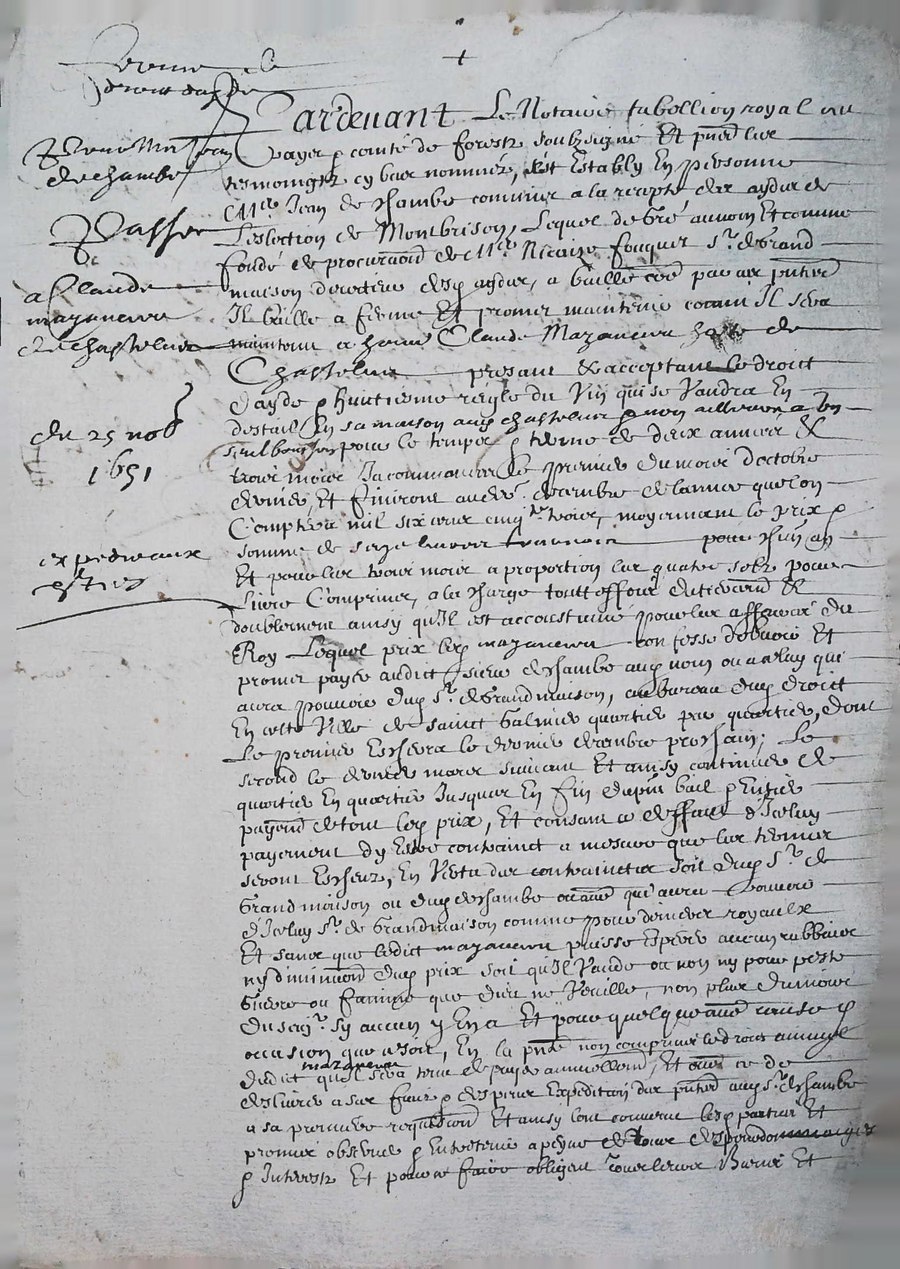 ferme de
droict dayde
Par Mre Jean
de chambe
Passe
a Claude
mazancieu
de chastelus
du 25 nobre
1651
expedie aux
parties
Pardevant Le Notaire tabellion royal au
pays & comté de forestz soubsigné Et pntz les
tesmoingtz cy bas nommés, s'est Estably En personne
Mre Jean de Chambe commis a la recepte des aydes de
Leslection de Montbrison, Lequel de Gré au nom Et comme
fondé de procuraon de Mre Nicaize fouquer Sr. de Grand
maison desd aydes, a baillé par ces pntes
Il baille a ferme Et promet maintenir
maintenir a honn Claude Mazancieu de
Chastelus presant & acceptant Le droit
dayde & huitiesme reglé du Vin qui se Vandra En
destail En sa maison aud chastelus & non ailleurs a Un
seul bouchon pour le temps & terme de deux années &
trois mois Ja commancés Le premier du mois d'octobre
dernier, Et finiront au der. decembre de lannée que lon
Comptera mil six cens cinqte trois, moyennant le prix &
somme de seize livres tournois pour chun an
Et pour les trois mois a proportion les quatre solz pour
Livre Comprins, a la charge toutteffois du &
doublement ainsy qu'Il est accoustumé pour les affaires du
Roy Lequel prix led mazancieu confesse debvoir Et
promet payer audict sieur de chambe aud nom ou a celuy qui
aura pouvoir dud Sr. de Grandmaison, au bureau dud droict
En ceste Ville de sainct Galmier quartier par quartier, dont
Le premier Eschera le dernier decembre prochain; Le
second le dernier mars suivant Et ainsy continuer de
quartier En quartier Jusques En fin du pnt bail & Entier
payemt de tout led prix, Et consant a deffaut d'Iceluy
payement dy Estre contrainct a mesure que les termes
seront Escheus, En Vertu des contrainctes soit dud Sr. de
Grand maison ou dud de chambe ou aue qui aura pouvoir
d'Iceluy Sr. de Grandmaison comme pour deniers royaulx
Et sans que ledict mazancieu puisse Esperer aucun rabbais
ny diminuon dud prix soit qu'Il Vande ou non ny pour peste
Guerre ou famine que dieu ne Veuille, non plus du mois
Sy aucun y En a Et pour quelque aue cause &
occasion que ce soit, En la pnte non comprins le droit annuel
dedict quel mazancieu sera tenu de payer annuellemt, Et oue ce de
deslivrer a ses frais & despens Expedition des pntes aud Sr. de chambe
a sa premiere requision Et ainsy lont convenu lesd parties Et
promet observer & Entretenir a peyne de tous despens dommaiges
& Interestz Et pour ce faire obligent tous leurs Biens Et